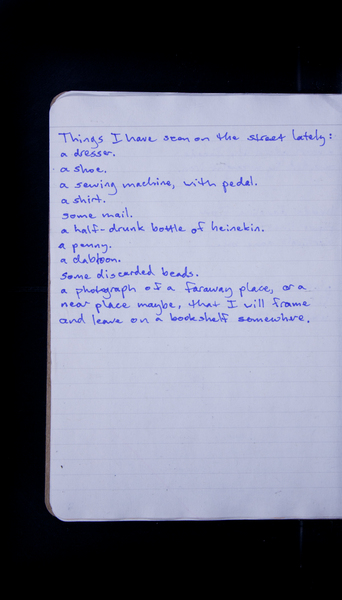 Things I have seen on the street lately:
a dresser.
a shoe.
a sewing machine, with pedal.
a shirt.
some mail.
a half-drunk bottle of heinekin.
a penny.
a dabloon.
some discarded beads.
a photograph of a faraway place, or a
near place maybe, that I will frame
and leave on a bookshelf somewhere.